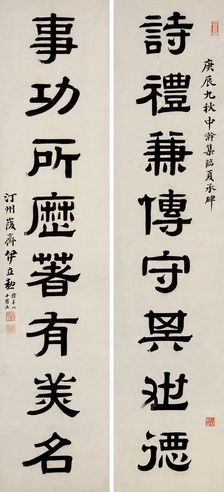 詩禮兼傳守其世德
庚辰九秋中澣集臨夏承碑
事功所歷著有美名
汀州峻齋伊立勳